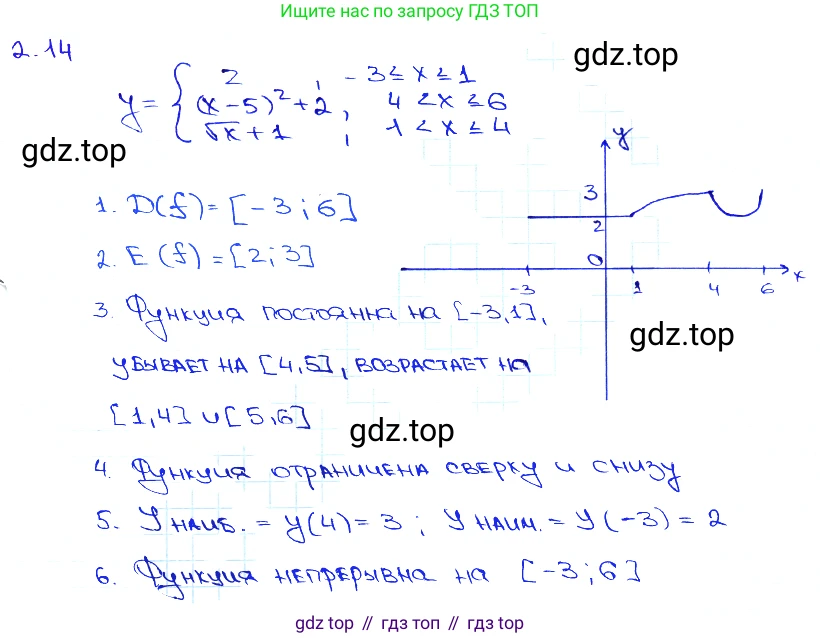 Ищите нас по запросу ГДЗ ТОП
2.14
gdz.top
y = { 2 , -3 ≤ x ≤ 1
(x-5)² + 2 , 4 < x ≤ 6
√x + 1 , 1 < x ≤ 4
gdz.top
y
3
2
0
-3 1 4 6 x
1. D(f) = [-3; 6]
2. E(f) = [2; 3]
3. Функция постоянна на [-3, 1],
gdz.top
убывает на [4, 5], возрастает на
[1, 4] ∪ [5, 6]
gdz.top
4. Функция ограничена сверху и снизу
5. Унаиб. = у(4) = 3 ; Унаим. = У(-3) = 2
6. Функция непрерывна на [-3; 6]
gdz top // гдз топ // gdz top